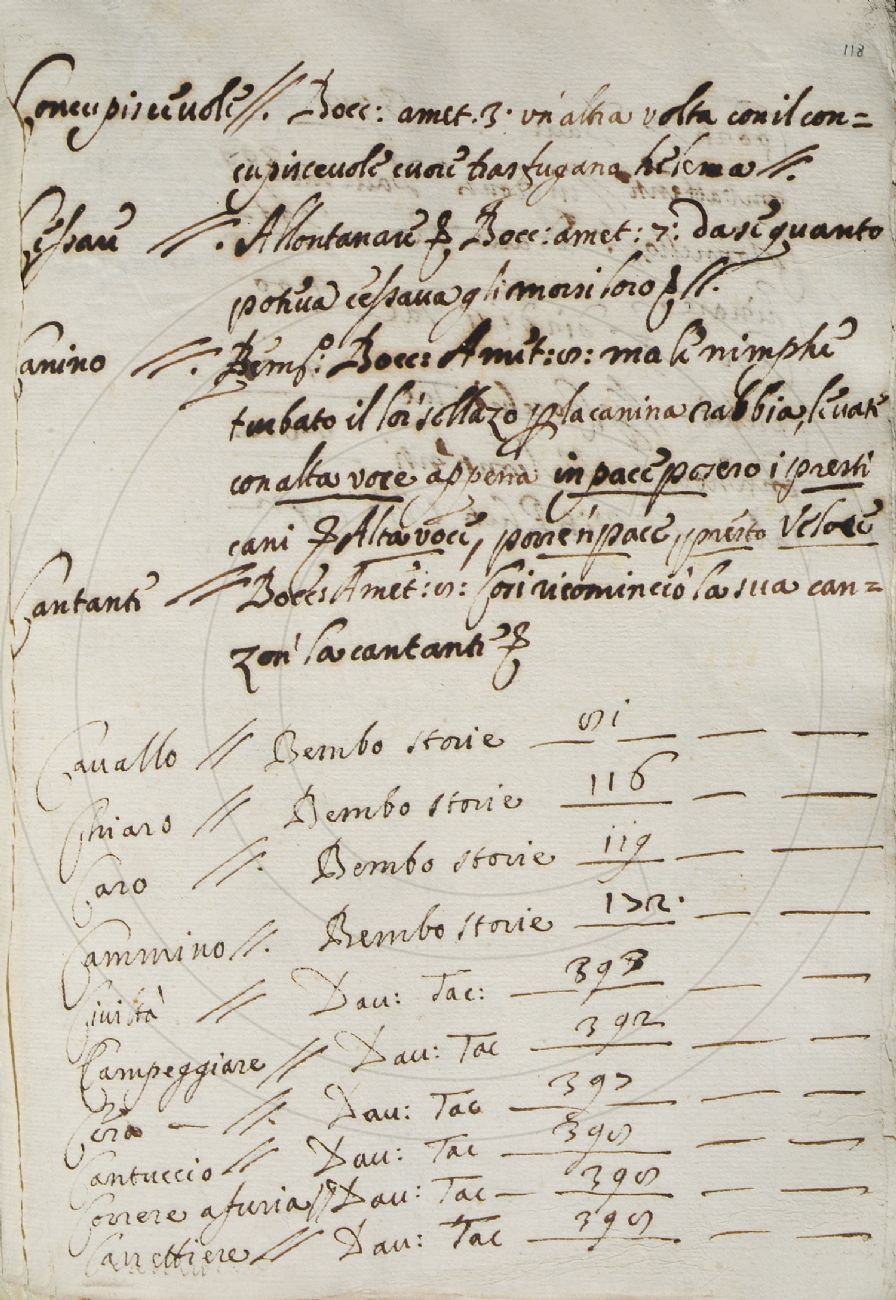 118
Concupiscevole //. Bocc: amet. 3. un'altra volta con il con=
cupiscevole cuore trasfugana helema //.
Cessare //. Allontanare Bocc: amet: 7: da se quanto
poteva cessava gli morsi loro //.
Canino //. Bocc: Amet: 8: ma le nimphe
turbato il lor sollazo canina rabbia, levate
con alta voce appena in pace posero i presti
cani Alta voce, porre in pace, presto Veloce
Cantante // Bocc: Amet: 8: ricominciò la sua can=
zon' la cantante
Cavallo // Bembo storie 81
Chiaro // Bembo storie 116
Caro //. Bembo storie 119
Cammino //. Bembo storie 172.
Civiltà // Dav: Tac: 393
Campeggiare // Dav: Tac 392
Cera — //. Dav: Tac 397
Cantuccio // Dav: Tac 398
Correre a furia // Dav: Tac — 398
Carrettiere // Dav: Tac 398